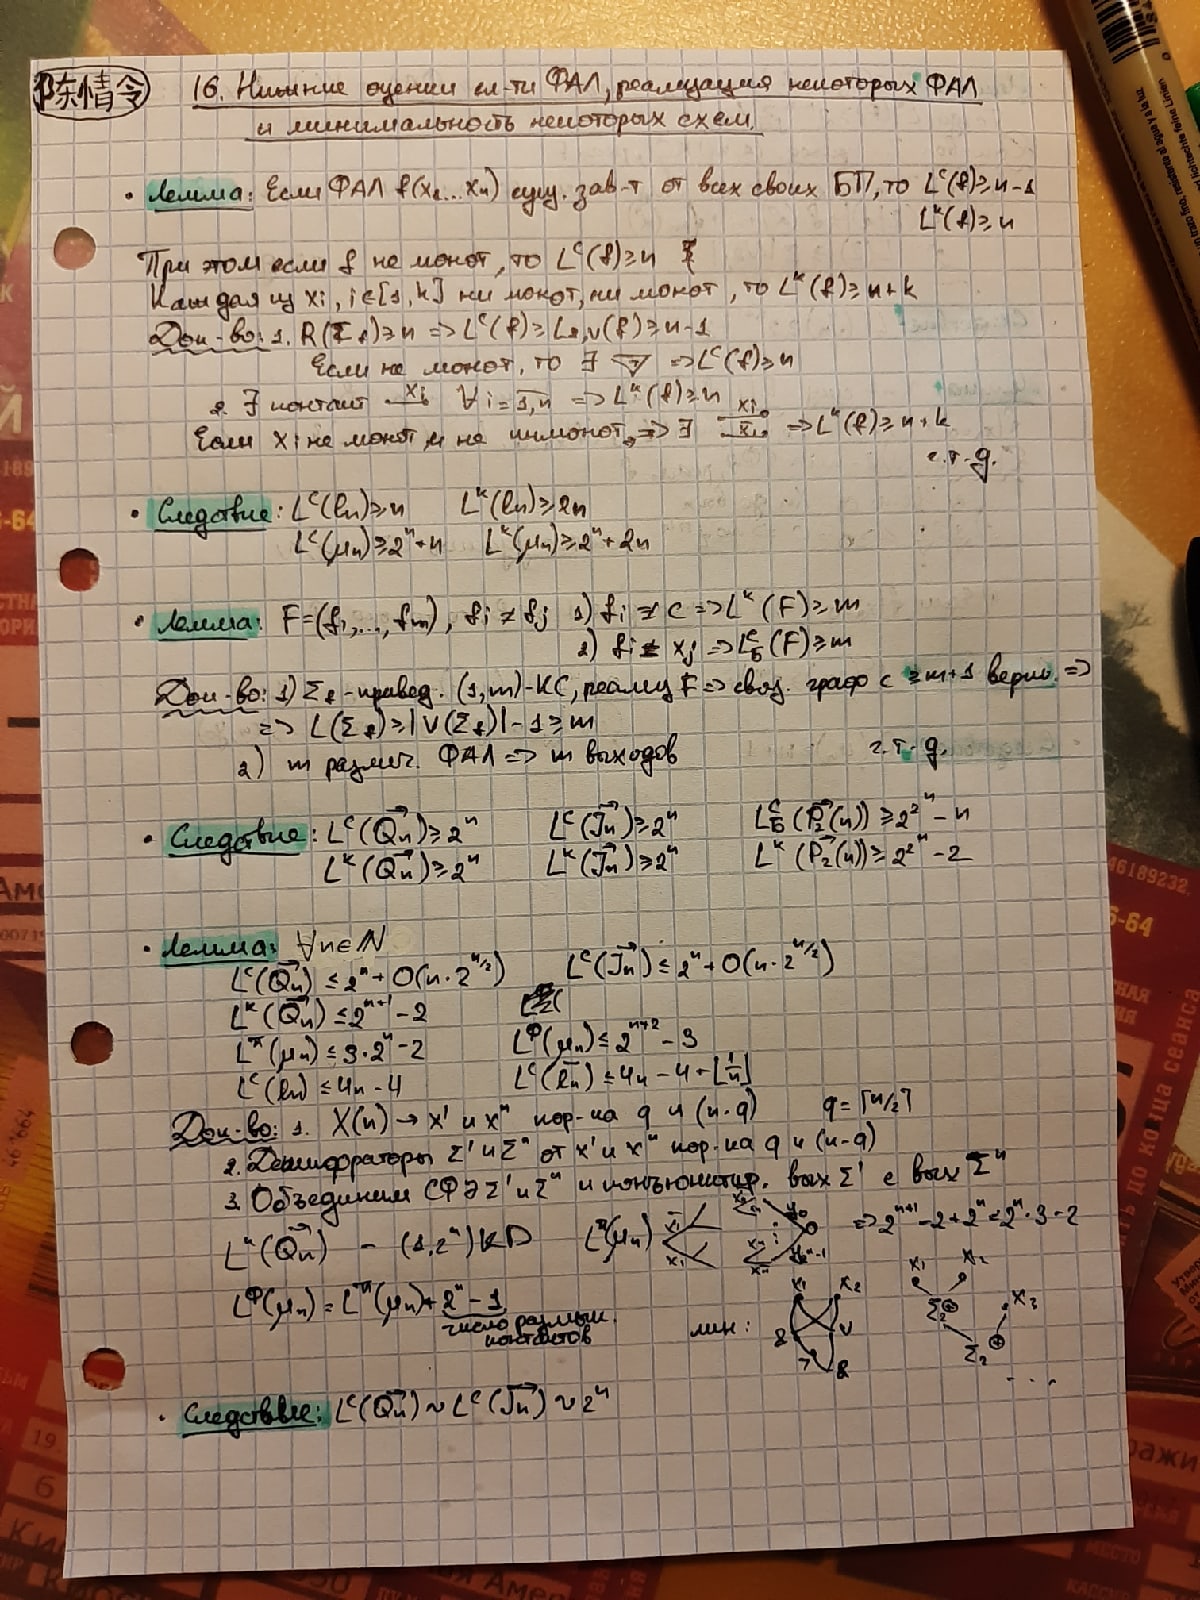 陈情令
16. Нижние оценки сл-ти ФАЛ, реализация некоторых ФАЛ
и минимальность некоторых схем.
• Лемма: Если ФАЛ f(x₁...xₙ) сущ. зав-т от всех своих БП, то Lᶜ(f)≥n-1
Lᵏ(f)≥n
При этом если f не монот, то Lᶜ(f)≥n
Каждая из xᵢ, i∈[1,k] ни монот, ни имонот, то Lᵏ(f)≥n+k
Док-во: 1. R(Σf)≥n => Lᶜ(f)≥L&,v(f)≥n-1
Если не монот, то ∃ ▽ => Lᶜ(f)≥n
2. ∃ контакт xᵢ ∀i=1,n => Lᵏ(f)≥n
Если xᵢ не монот и не инмонот => ∃ xᵢ x̄ᵢ => Lᵏ(f)≥n+k
ч.т.д.
• Следствие: Lᶜ(lₙ)≥n Lᵏ(lₙ)≥2n
Lᶜ(μₙ)≥2ⁿ+n Lᵏ(μₙ)≥2ⁿ+2n
• Лемма: F=(f₁,...,fₘ), fᵢ≠fⱼ 1) fᵢ≠c => Lᵏ(F)≥m
2) fᵢ≠xⱼ => Lᶜ_Б(F)≥m
Док-во: 1) Σf - привед. (1,m)-КС, реализ F => связ. граф с ≥m+1 верш. =>
=> L(Σf)≥|V(Σf)|-1≥m
2) m различ. ФАЛ => m выходов ч.т.д.
• Следствие: Lᶜ(Q⃗ₙ)≥2ⁿ Lᶜ(J⃗ₙ)≥2ⁿ Lᶜ_Б(P⃗₂(n))≥2^2ⁿ-n
Lᵏ(Q⃗ₙ)≥2ⁿ Lᵏ(J⃗ₙ)≥2ⁿ Lᵏ(P⃗₂(n))≥2^2ⁿ-2
• Лемма: ∀n∈ℕ
Lᶜ(Q⃗ₙ)≤2ⁿ+O(n·2^(n/2)) Lᶜ(J⃗ₙ)≤2ⁿ+O(n·2^(n/2))
Lᵏ(Q⃗ₙ)≤2ⁿ⁺¹-2
L^π(μₙ)≤3·2ⁿ-2 L^Ф(μₙ)≤2ⁿ⁺²-3
Lᶜ(lₙ)≤4n-4 Lᶜ(l̄ₙ)≤4n-4+⌊1/n⌋
Док-во: 1. X(n) → x' и x'' пор-ка q и (n-q) q=⌈n/2⌉
2. Дешифраторы Σ' и Σ'' от x' и x'' пор-ка q и (n-q)
3. Объединим СФЭ Σ' и Σ'' и конъюнктир. вых Σ' с вых Σ''
Lᵏ(Q⃗ₙ) - (1,2ⁿ) КД L^π(μₙ) => 2ⁿ⁺¹-2+2ⁿ=2ⁿ·3-2
L^Ф(μₙ)=L^π(μₙ)+2ⁿ-1
число размык. контактов
мин: x₁ x₂ & v ¬ & x₁ x₂ Σ₂⊕ x₃ Σ₂⊕ ...
• Следствие: Lᶜ(Q⃗ₙ) ~ Lᶜ(J⃗ₙ) ~ 2ⁿ